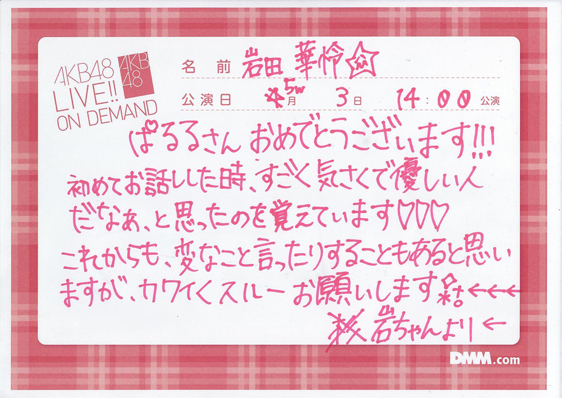 AKB48
LIVE!!
ON DEMAND
AKB
48
名前 岩田 華怜
公演日 5月 3日 14:00 公演
ぱるるさん おめでとうございます!!!
初めてお話しした時、すごく気さくで優しい人
だなぁ、と思ったのを覚えています♡♡♡
これからも、変なこと言ったりすることもあると思い
ますが、カワイくスルーお願いします←←←
岩ちゃんより←
DMM.com